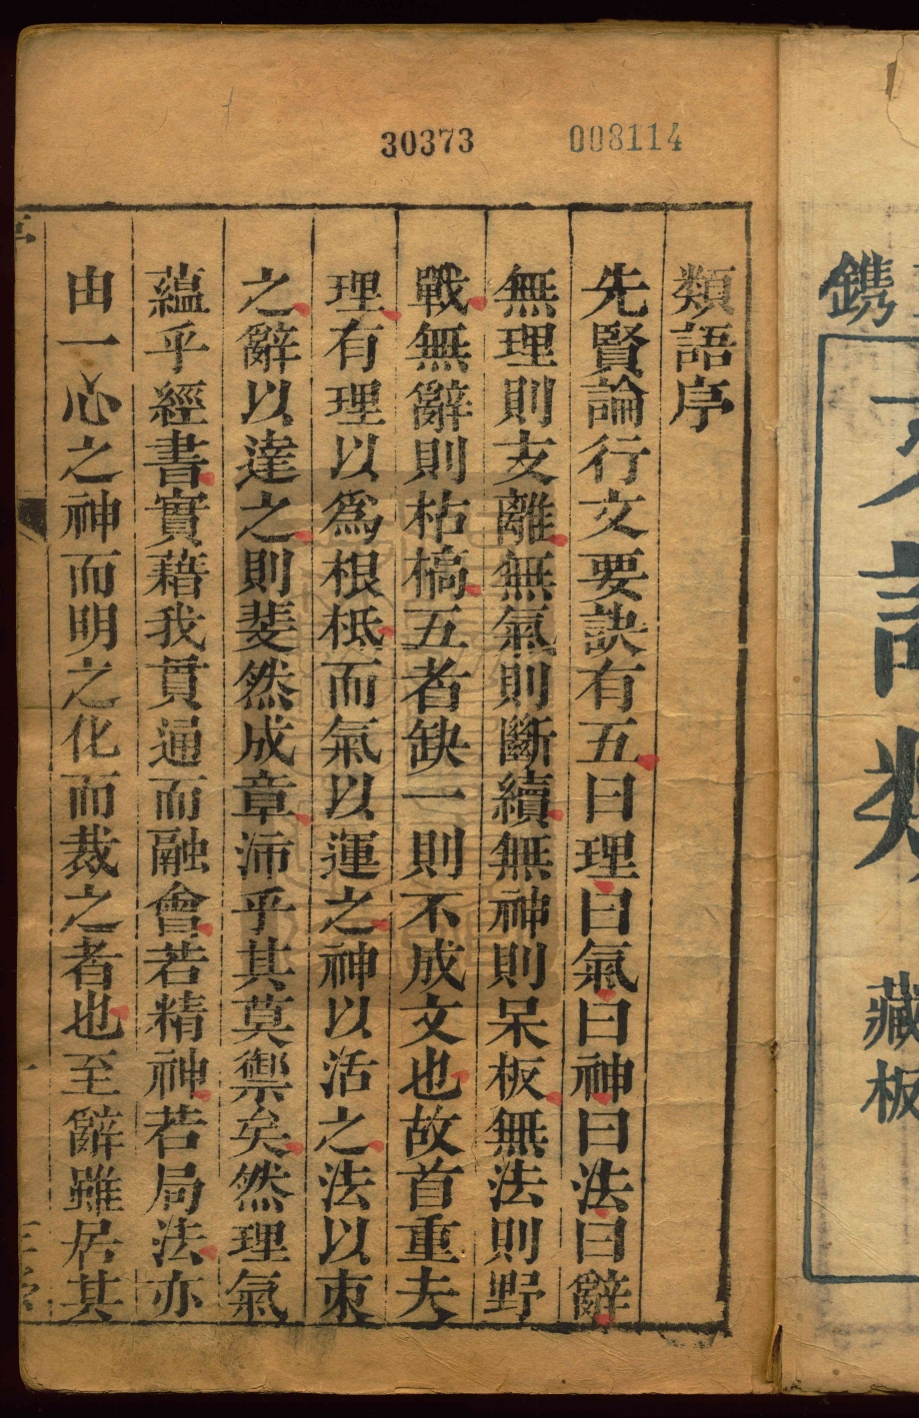 30373
008114
鐫
語類
藏板
類語序
先賢論行文要訣有五曰理曰氣曰神曰法曰辭
無理則支離無氣則斷續無神則呆板無法則野
戰無辭則枯槁五者缺一則不成文也故首重夫
理有理以爲根柢而氣以運之神以活之法以束
之辭以達之則斐然成章沛乎其莫禦矣然理氣
蘊乎經書實藉我貫通而融會若精神若局法亦
由一心之神而明之化而裁之者也至辭雖居其